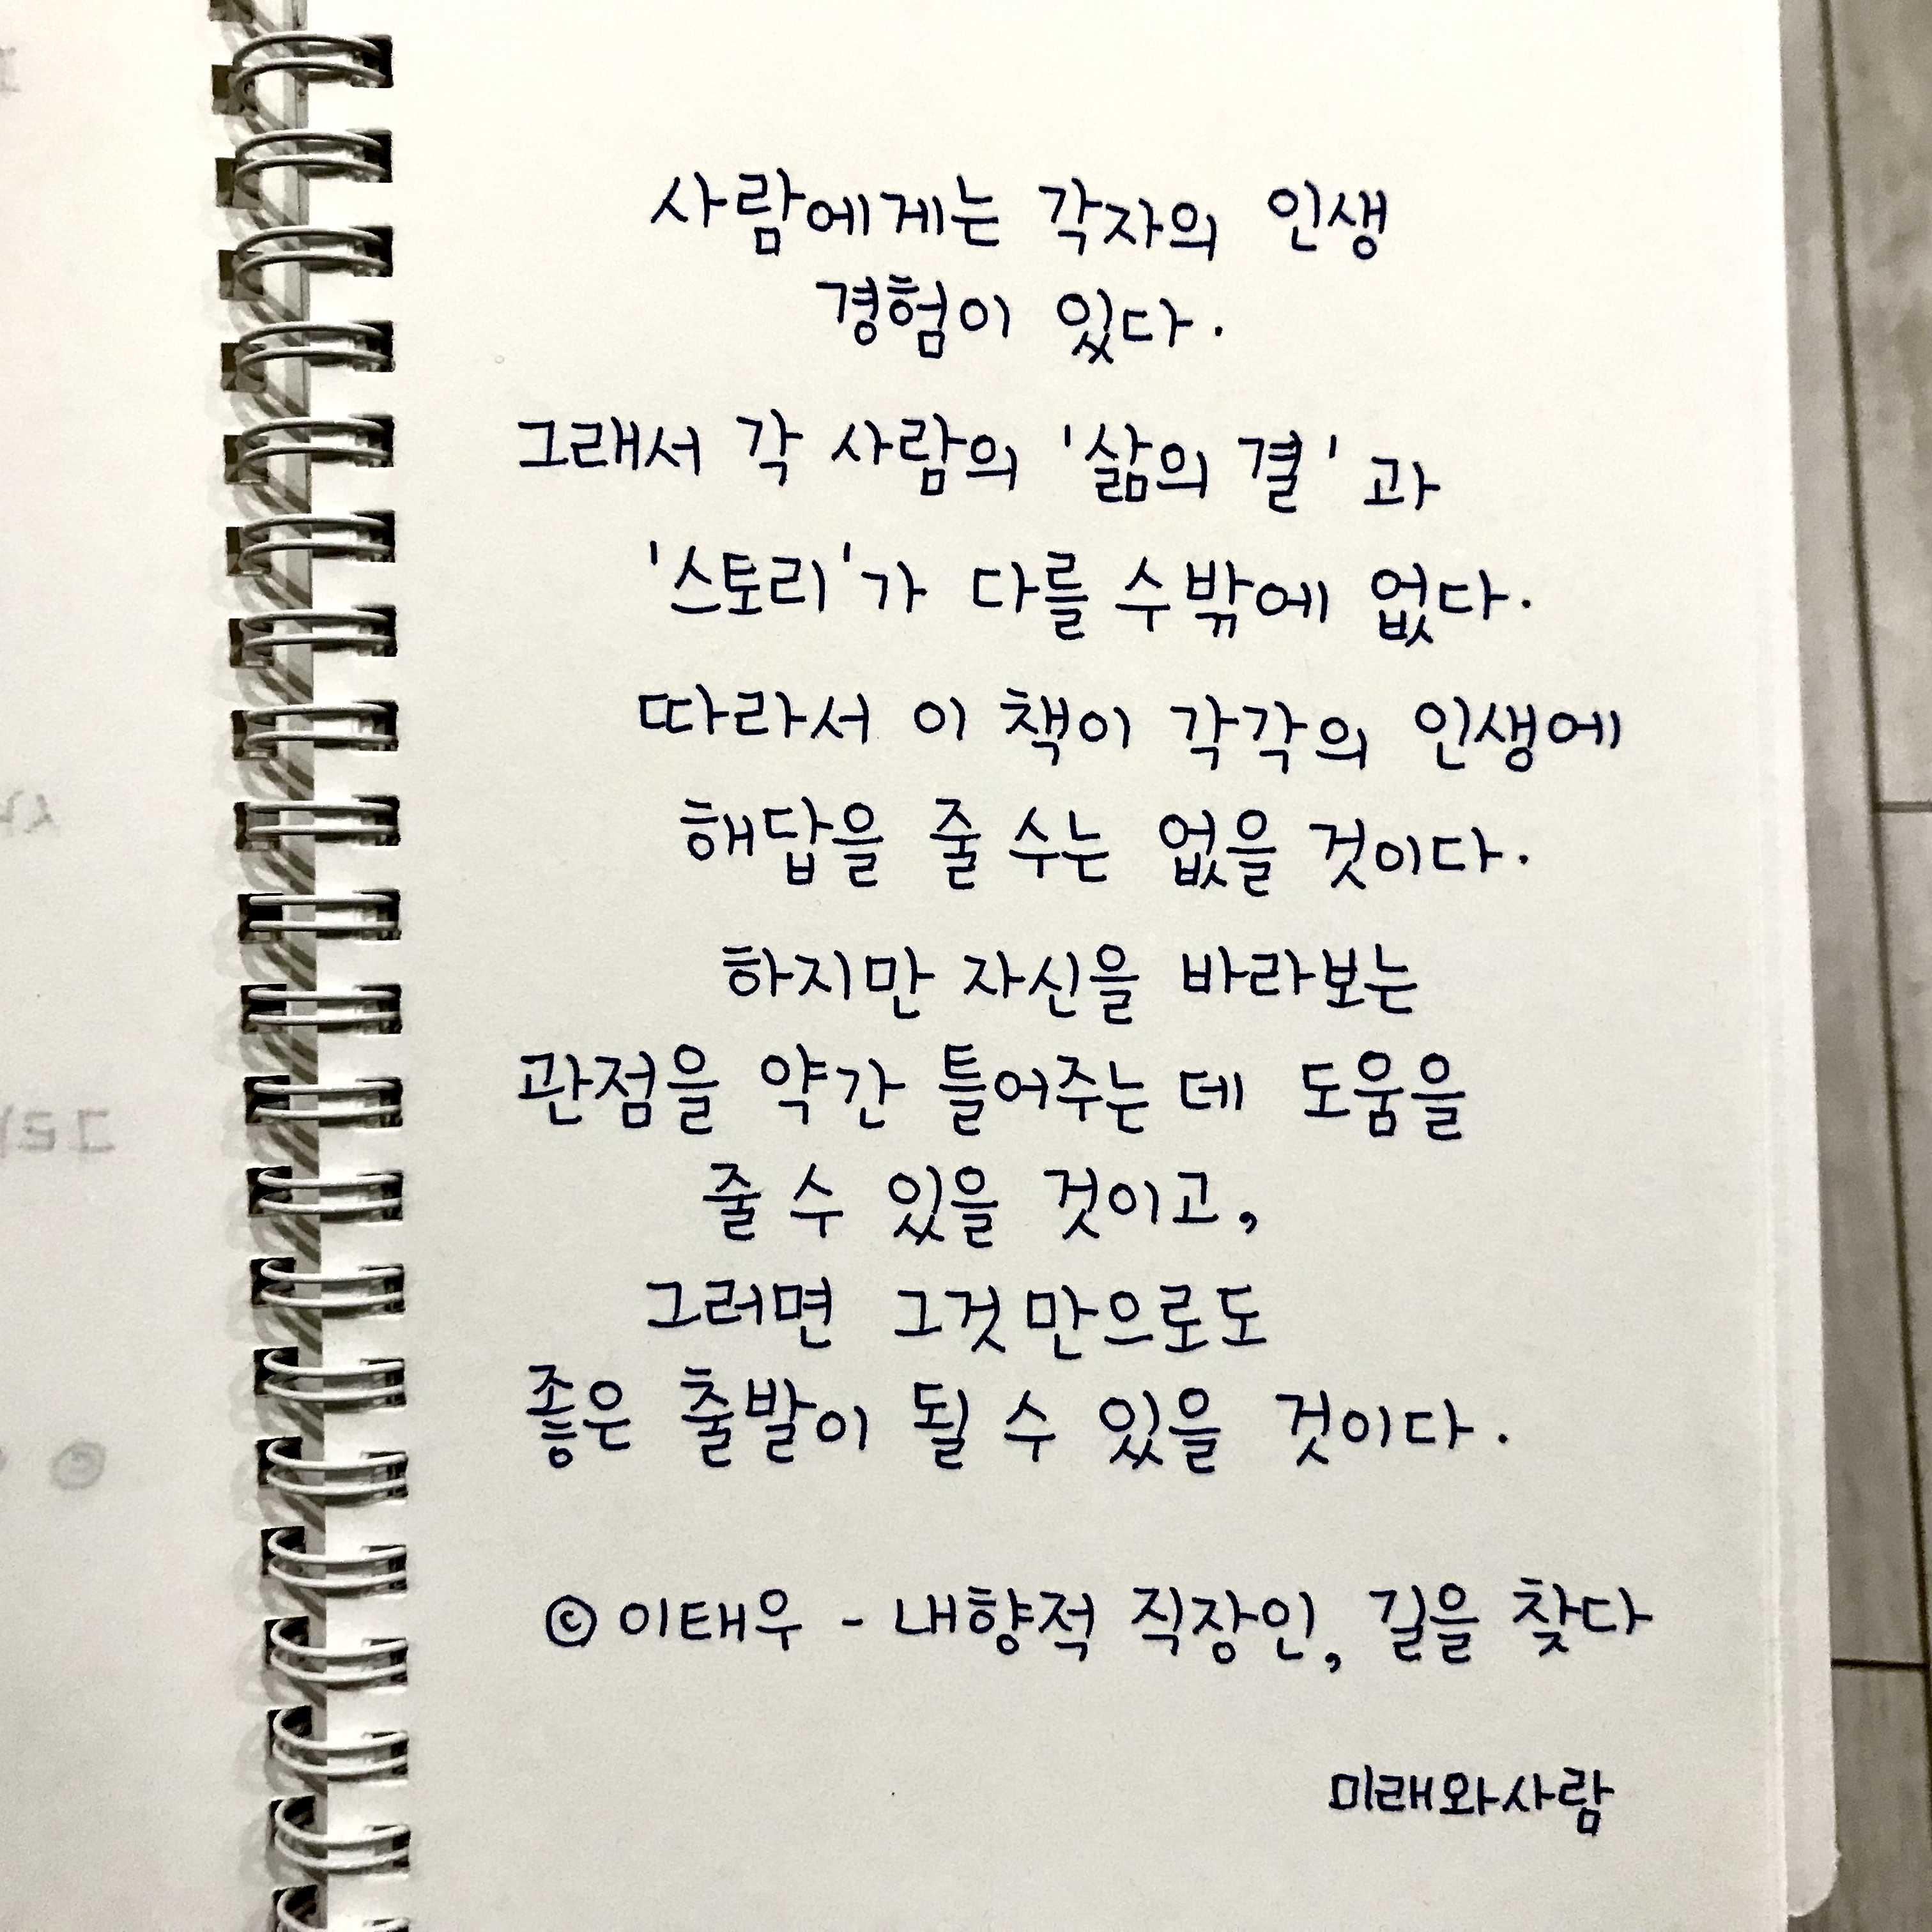 사람에게는 각자의 인생
경험이 있다.
그래서 각 사람의 '삶의 결'과
'스토리'가 다를 수밖에 없다.
따라서 이 책이 각각의 인생에
해답을 줄 수는 없을 것이다.
하지만 자신을 바라보는
관점을 약간 틀어주는 데 도움을
줄 수 있을 것이고,
그러면 그것만으로도
좋은 출발이 될 수 있을 것이다.
© 이태우 - 내향적 직장인, 길을 찾다
미래와사람